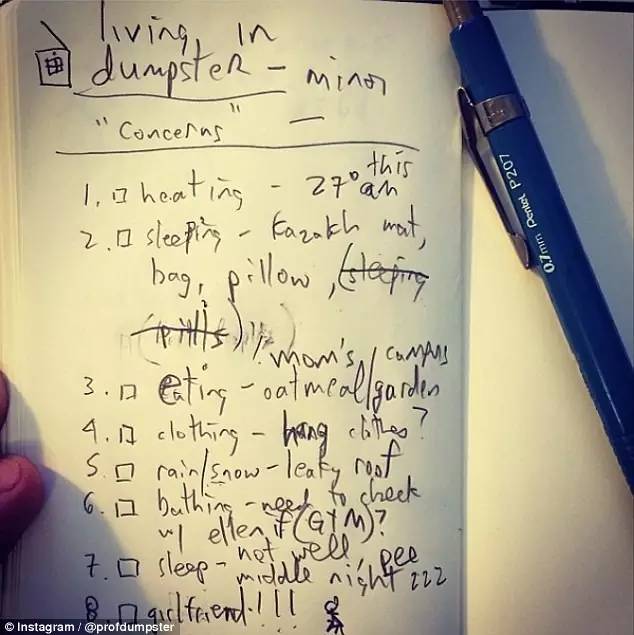 living in
dumpster - minor
"concerns" -
1. heating - 27° this am
2. sleeping - Kazakh mat,
bag, pillow, (sleeping
pills)!!
mom's/campus
3. eating - oatmeal/garden
4. clothing - hang clothes?
5. rain/snow - leaky roof
6. bathing - need to check
w/ ellen if (GYM)?
7. sleep - not well, pee
middle night zzz
8. girlfriend!!!
0.7mm Pentel P207
© Instagram / @profdumpster